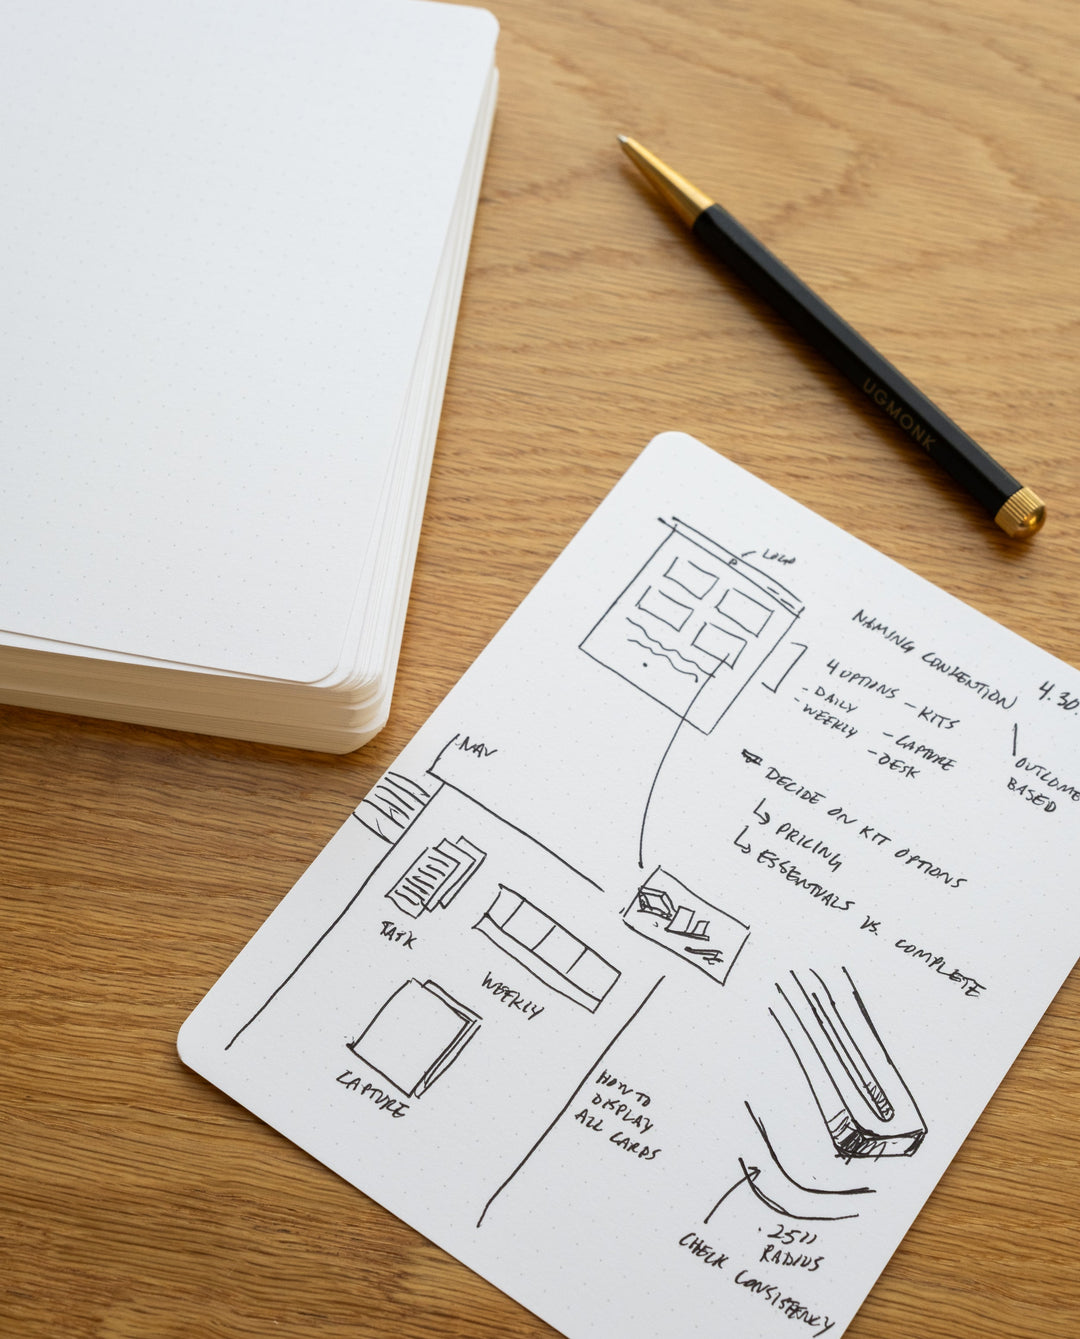 UGMONK
LOGO
NAMING CONVENTION
4.30.
4 OPTIONS - KITS
- DAILY - CAPTURE
- WEEKLY - DESK
OUTCOME
BASED
DECIDE ON KIT OPTIONS
↳ PRICING
↳ ESSENTIALS VS. COMPLETE
NAV
TASK
WEEKLY
CAPTURE
HOW TO
DISPLAY
ALL CARDS
.25"
RADIUS
CHECK CONSISTENCY